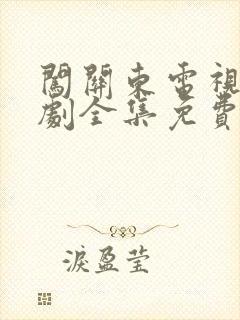 闖關東電視
劇全集免費
淚盈莹